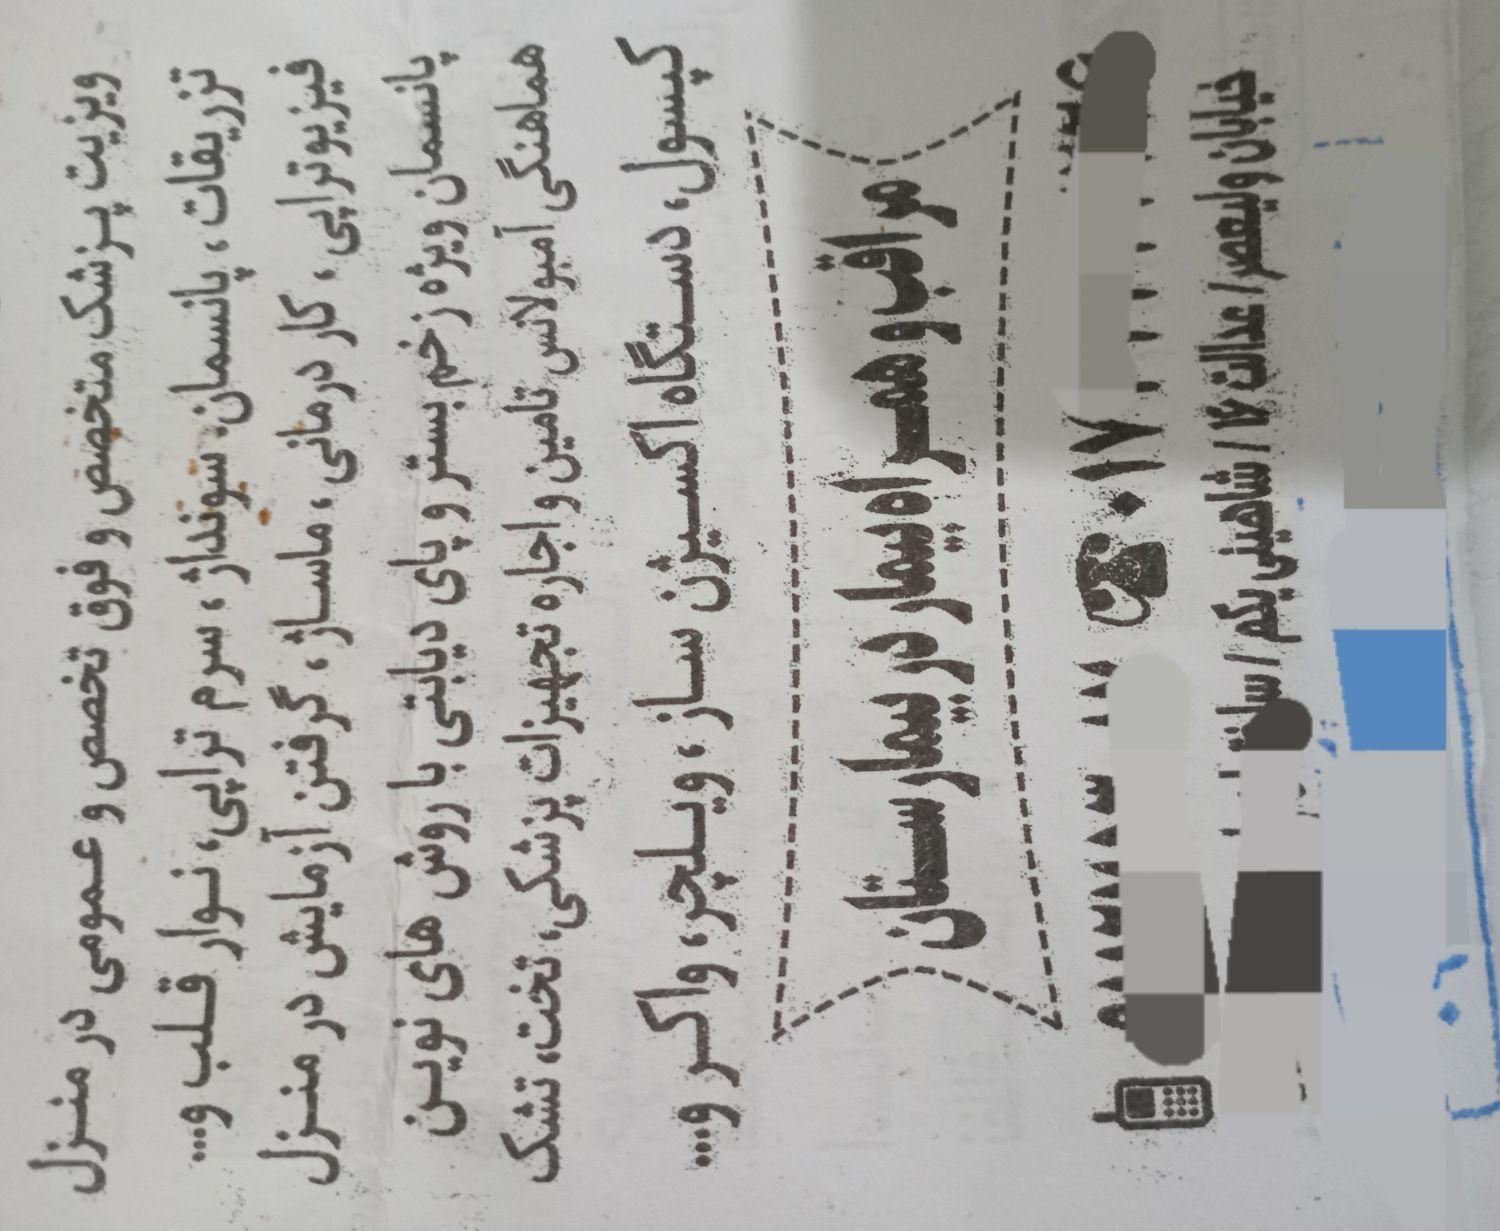 ویزیت پزشک متخصص و فوق تخصص و عمومی در منزل
تزریقات، پانسمان، سونداژ، سرم تراپی، نوار قلب و...
فیزیوتراپی، کار درمانی، ماساژ، گرفتن آزمایش در منزل
پانسمان ویژه زخم بستر و پای دیابتی با روش های نوین
هماهنگی آمبولانس تامین و اجاره تجهیزات پزشکی، تخت، تشک
کپسول، دستگاه اکسیژن ساز، ویلچر، واکر و...
مراقب و همراه بیمار در بیمارستان
۰۱۷
خیابان ولیعصر / عدالت ۱۶ / شاهینی یکم /